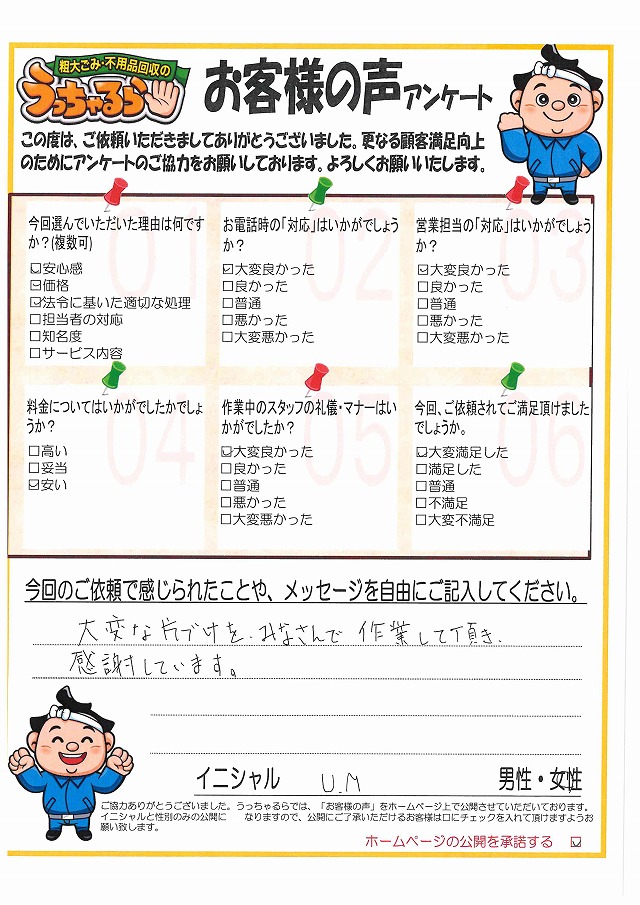 粗大ごみ・不用品回収の
うっちゃるら
お客様の声アンケート
この度は、ご依頼いただきましてありがとうございました。更なる顧客満足向上
のためにアンケートのご協力をお願いしております。よろしくお願いいたします。
01
今回選んでいただいた理由は何です
か?(複数可)
☑安心感
☑価格
☑法令に基いた適切な処理
□担当者の対応
□知名度
□サービス内容
02
お電話時の「対応」はいかがでしょう
か?
☑大変良かった
□良かった
□普通
□悪かった
□大変悪かった
03
営業担当の「対応」はいかがでしょう
か?
☑大変良かった
□良かった
□普通
□悪かった
□大変悪かった
04
料金についてはいかがでしたかでしょ
うか?
□高い
□妥当
☑安い
05
作業中のスタッフの礼儀・マナーはい
かがでしたか?
☑大変良かった
□良かった
□普通
□悪かった
□大変悪かった
06
今回、ご依頼されてご満足頂けました
でしょうか。
☑大変満足した
□満足した
□普通
□不満足
□大変不満足
今回のご依頼で感じられたことや、メッセージを自由にご記入してください。
大変な片づけを、みなさんで作業して頂き、
感謝しています。
イニシャル U.M 男性・女性
ご協力ありがとうございました。うっちゃるらでは、「お客様の声」をホームページ上で公開させていただいております。
イニシャルと性別のみの公開に なりますので、公開にご了承いただけるお客様は口にチェックを入れて頂けますようお
願い致します。
ホームページの公開を承諾する ☑